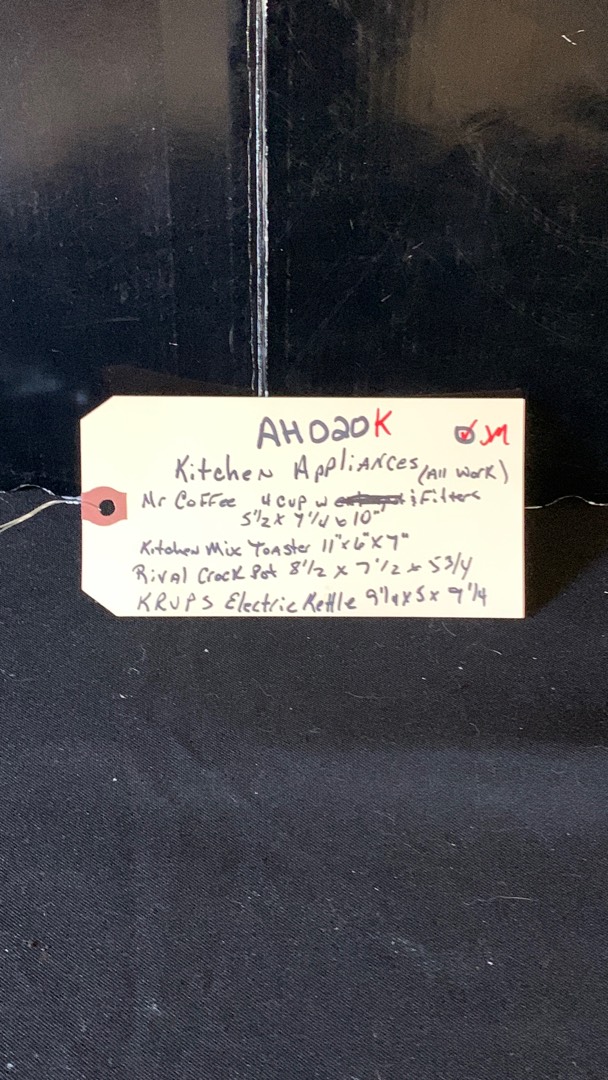 AH020K ☑ JM
Kitchen Appliances (All Work)
Mr Coffee 4 cup w & Filters
5 1/2 x 7 1/4 x 10"
Kitchen Mix Toaster 11" x 6" x 7"
Rival Crock Pot 8 1/2 x 7 1/2 x 5 3/4
KRUPS Electric Kettle 9 1/4 x 5 x 9 1/4